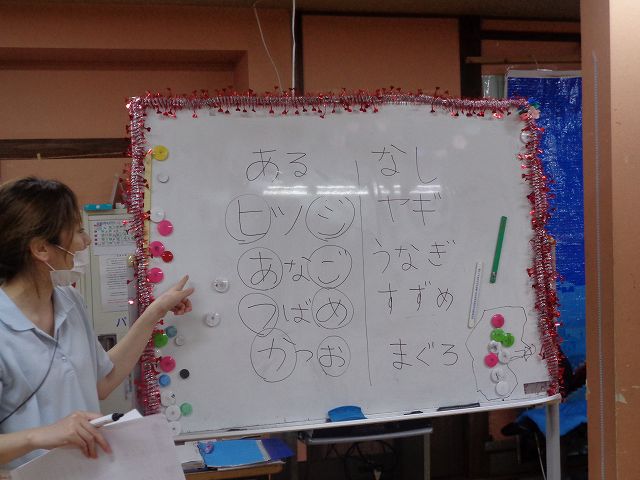 ある なし
ヒツジ ヤギ
あなご うなぎ
つばめ すずめ
かつお まぐろ